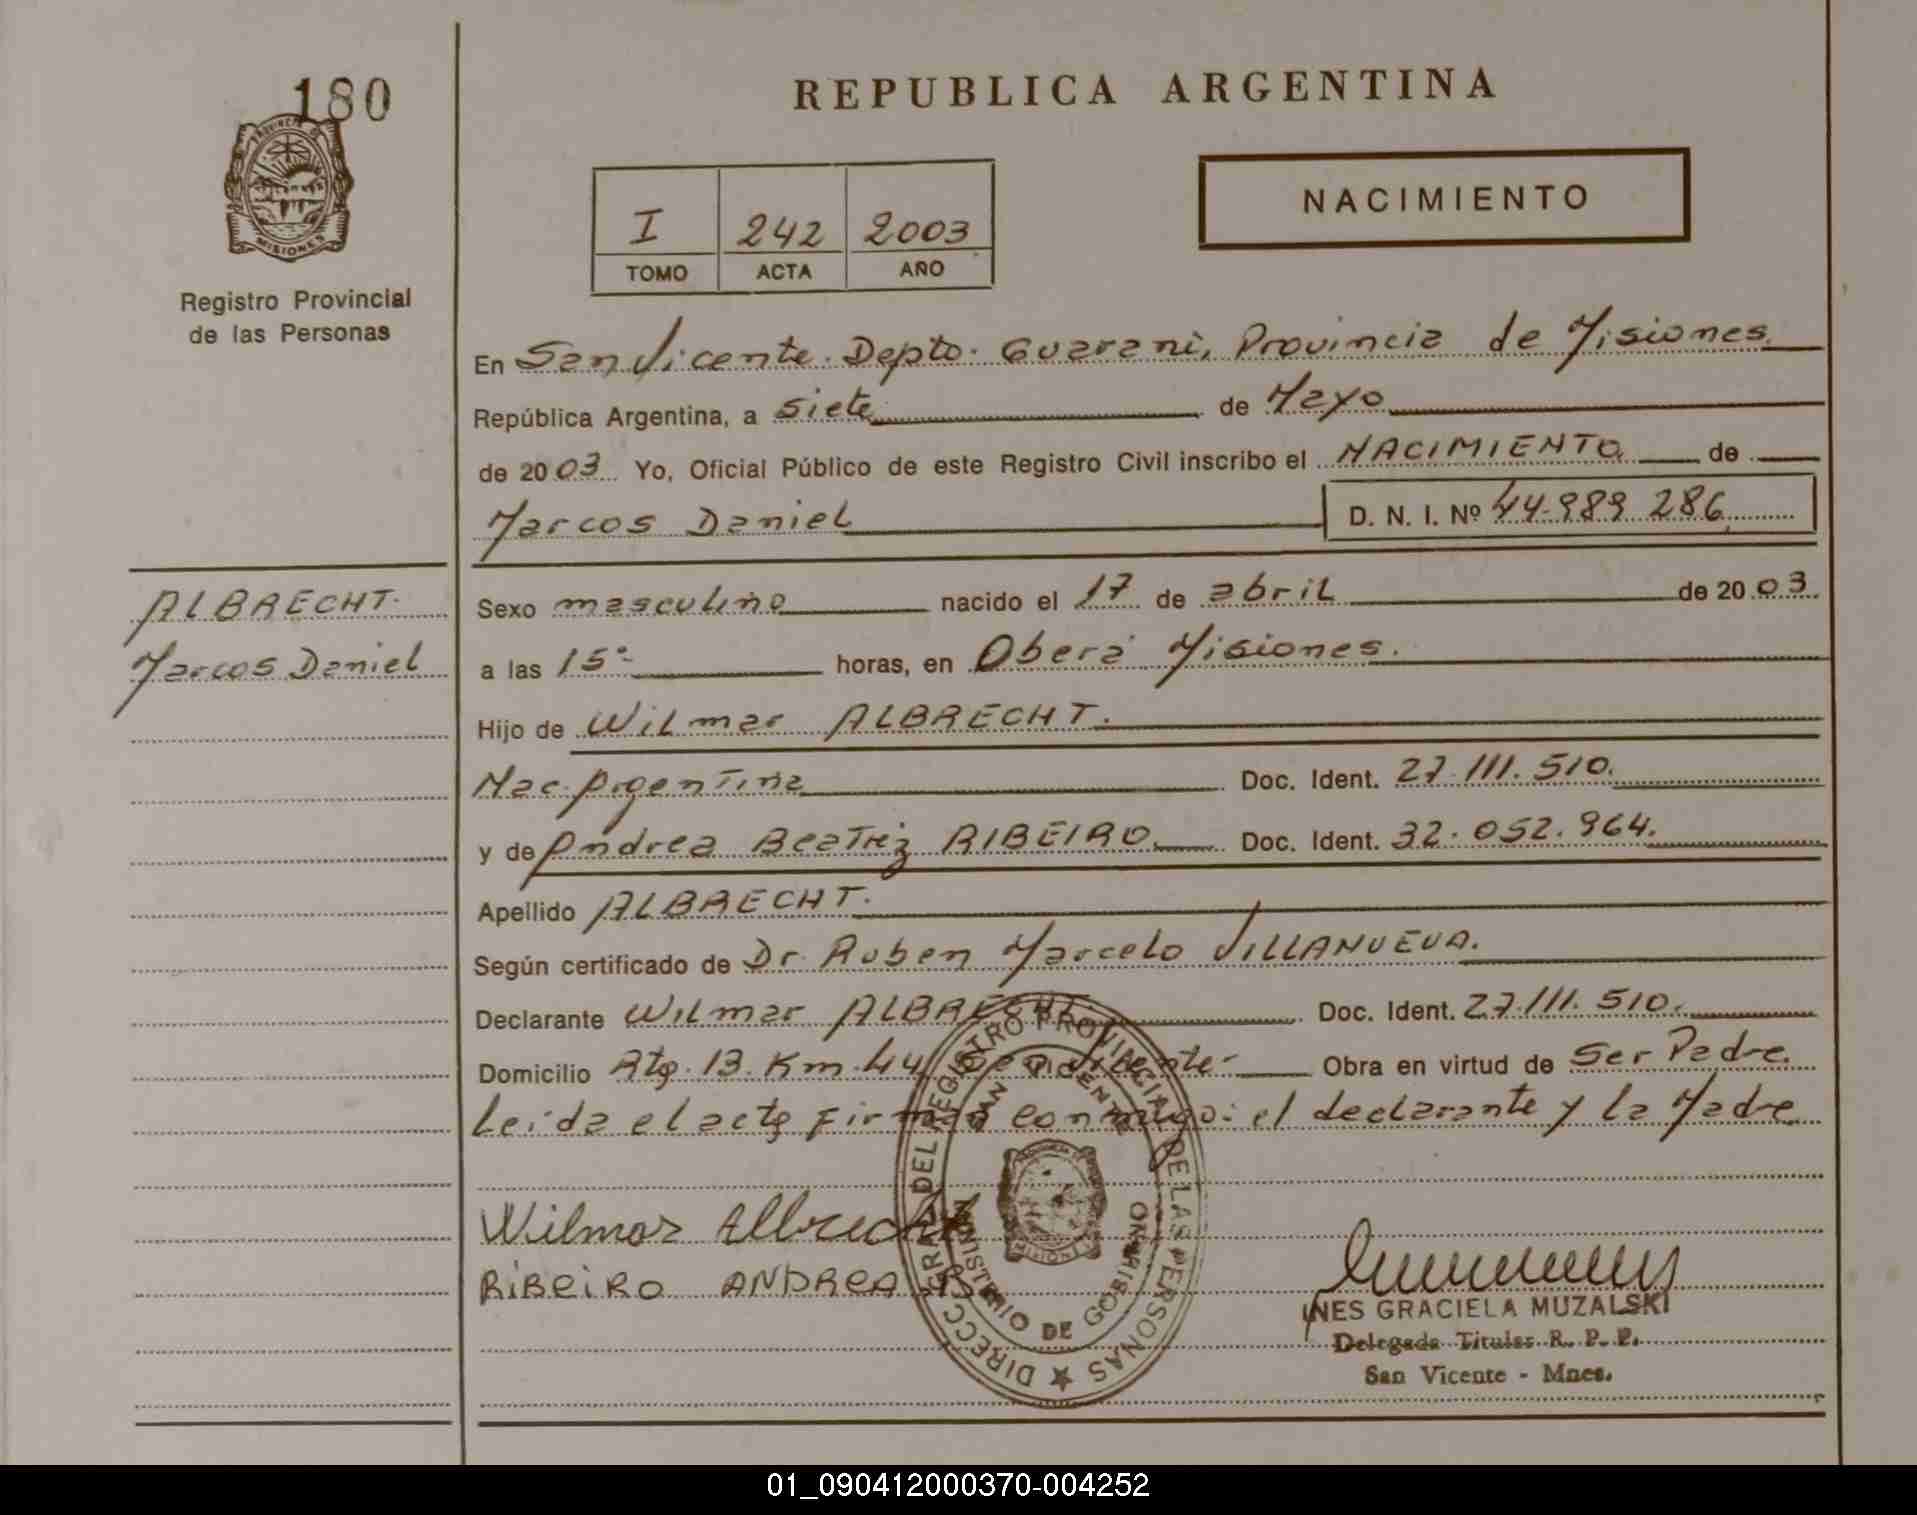 180
REPUBLICA ARGENTINA
PROVINCIA DE
MISIONES
Registro Provincial
de las Personas
I 242 2003
TOMO ACTA AÑO
NACIMIENTO
En San Vicente. Depto. Guarani, Provincia de Misiones.
República Argentina, a siete de Mayo
de 2003 Yo, Oficial Público de este Registro Civil inscribo el NACIMIENTO de
Marcos Daniel D. N. I. Nº 44.989 286
ALBRECHT.
Marcos Daniel
Sexo masculino nacido el 17 de abril de 2003.
a las 15º- horas, en Oberá Misiones.
Hijo de Wilmar ALBRECHT.
Nac. Argentina Doc. Ident. 27.111.510.
y de Andrea Beatriz RIBEIRO. Doc. Ident. 32.052.964.
Apellido ALBRECHT.
Según certificado de Dr. Ruben Marcelo VILLANUEVA.
Declarante Wilmar ALBRECHT. Doc. Ident. 27.111.510.
Domicilio Rta. 13. Km. 44 Vicente- Obra en virtud de Ser Padre.
Leída el acta firman conmigo: el declarante y la Madre
DIRECC. GRAL. DEL REGISTRO PROVINCIAL DE LAS PERSONAS
SAN VICENTE
MINISTERIO DE GOBIERNO
Wilmar Albrecht
RiBeiRO ANDReA B.
INES GRACIELA MUZALSKI
Delegada Titular R. P. P.
San Vicente - Mnes.
01_090412000370-004252